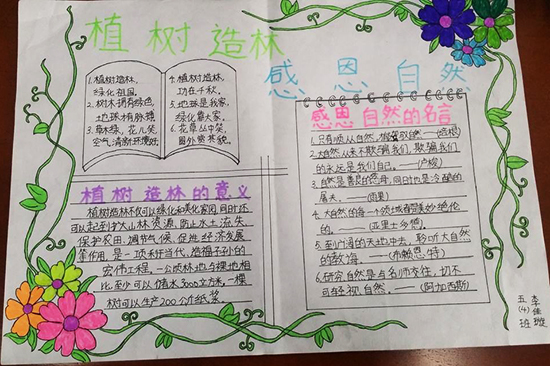 植树造林
感恩自然
1.植树造林,
绿化祖国。
2.树木拥有绿色,
地球才有脉搏
3.草木绿,花儿笑,
空气清新环境好
4.植树造林,
功在千秋。
5.地球是我家,
绿化靠大家。
6.花草丛中笑,
园外赏其貌。
植树造林的意义
植树造林不仅可以绿化和美化家园,同时还
可以起到扩大山林资源,防止水土流失,
保护农田,调节气候,促进经济发展
等作用,是一项利于当代,造福子孙的
宏伟工程。一公顷林地与裸地相
比至少可以储水3000立方米。一棵
树可以生产200公斤纸浆
感恩自然的名言
1.只有顺从自然,才能驾驭自然。——(培根)
2.大自然从来不欺骗我们,欺骗我们
的永远是我们自己。——(卢梭)
3.自然是善良的慈母,同时也是冷酷的
屠夫。——(雨果)
4.大自然的每一个领域都是美妙绝伦
的。——(亚里士多德)
5.到广阔的天地中去,聆听大自然
的教诲。——(布赖恩·特)
6.研究自然是与名师交往,切不
可轻视自然。——(阿加西斯)
五(4)班
李佳璇